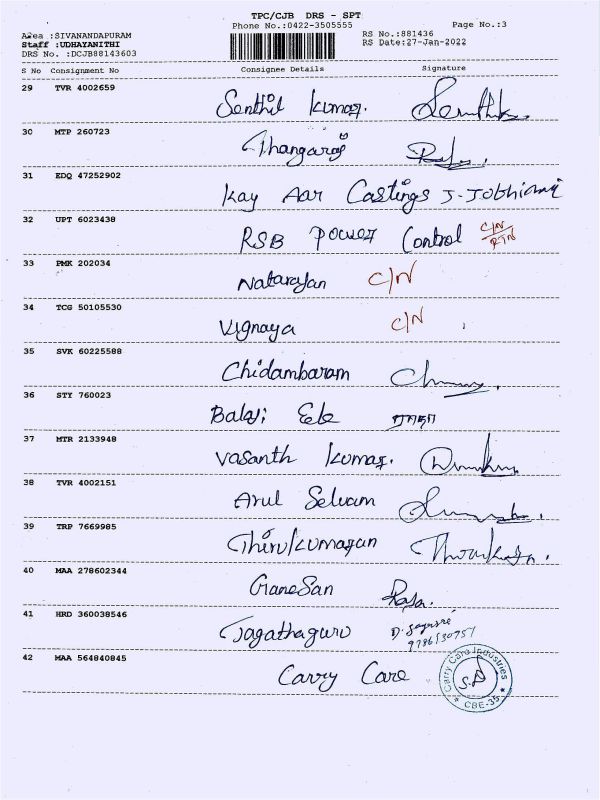 TPC/CJB DRS - SPT
Phone No.:0422-3505555 Page No.:3
Area :SIVANANDAPURAM RS No.:881436
Staff :UDHAYANITHI RS Date:27-Jan-2022
DRS No. :DCJB88143603
S No Consignment No Consignee Details Signature
29 TVR 4002659 Senthil Kumar.
30 MTP 260723 Thangaraj
31 EDQ 47252902 Kay Aar Castings
32 UPT 6023438 RSB Power Control C/N RTN
33 PMK 202034 Natarajan C/N
34 TCG 50105530 Vignaya C/N
35 SVK 60225588 Chidambaram
36 STY 760023 Balaji Ele
37 MTR 2133948 Vasanth Kumar.
38 TVR 4002151 Arul Selvam
39 TRP 7669985 Thirukumaran
40 MAA 278602344 GaneSan Raja.
41 HRD 360038546 Jagathaguru
42 MAA 564840845 Carry Care
Carry Care Industries
CBE-35